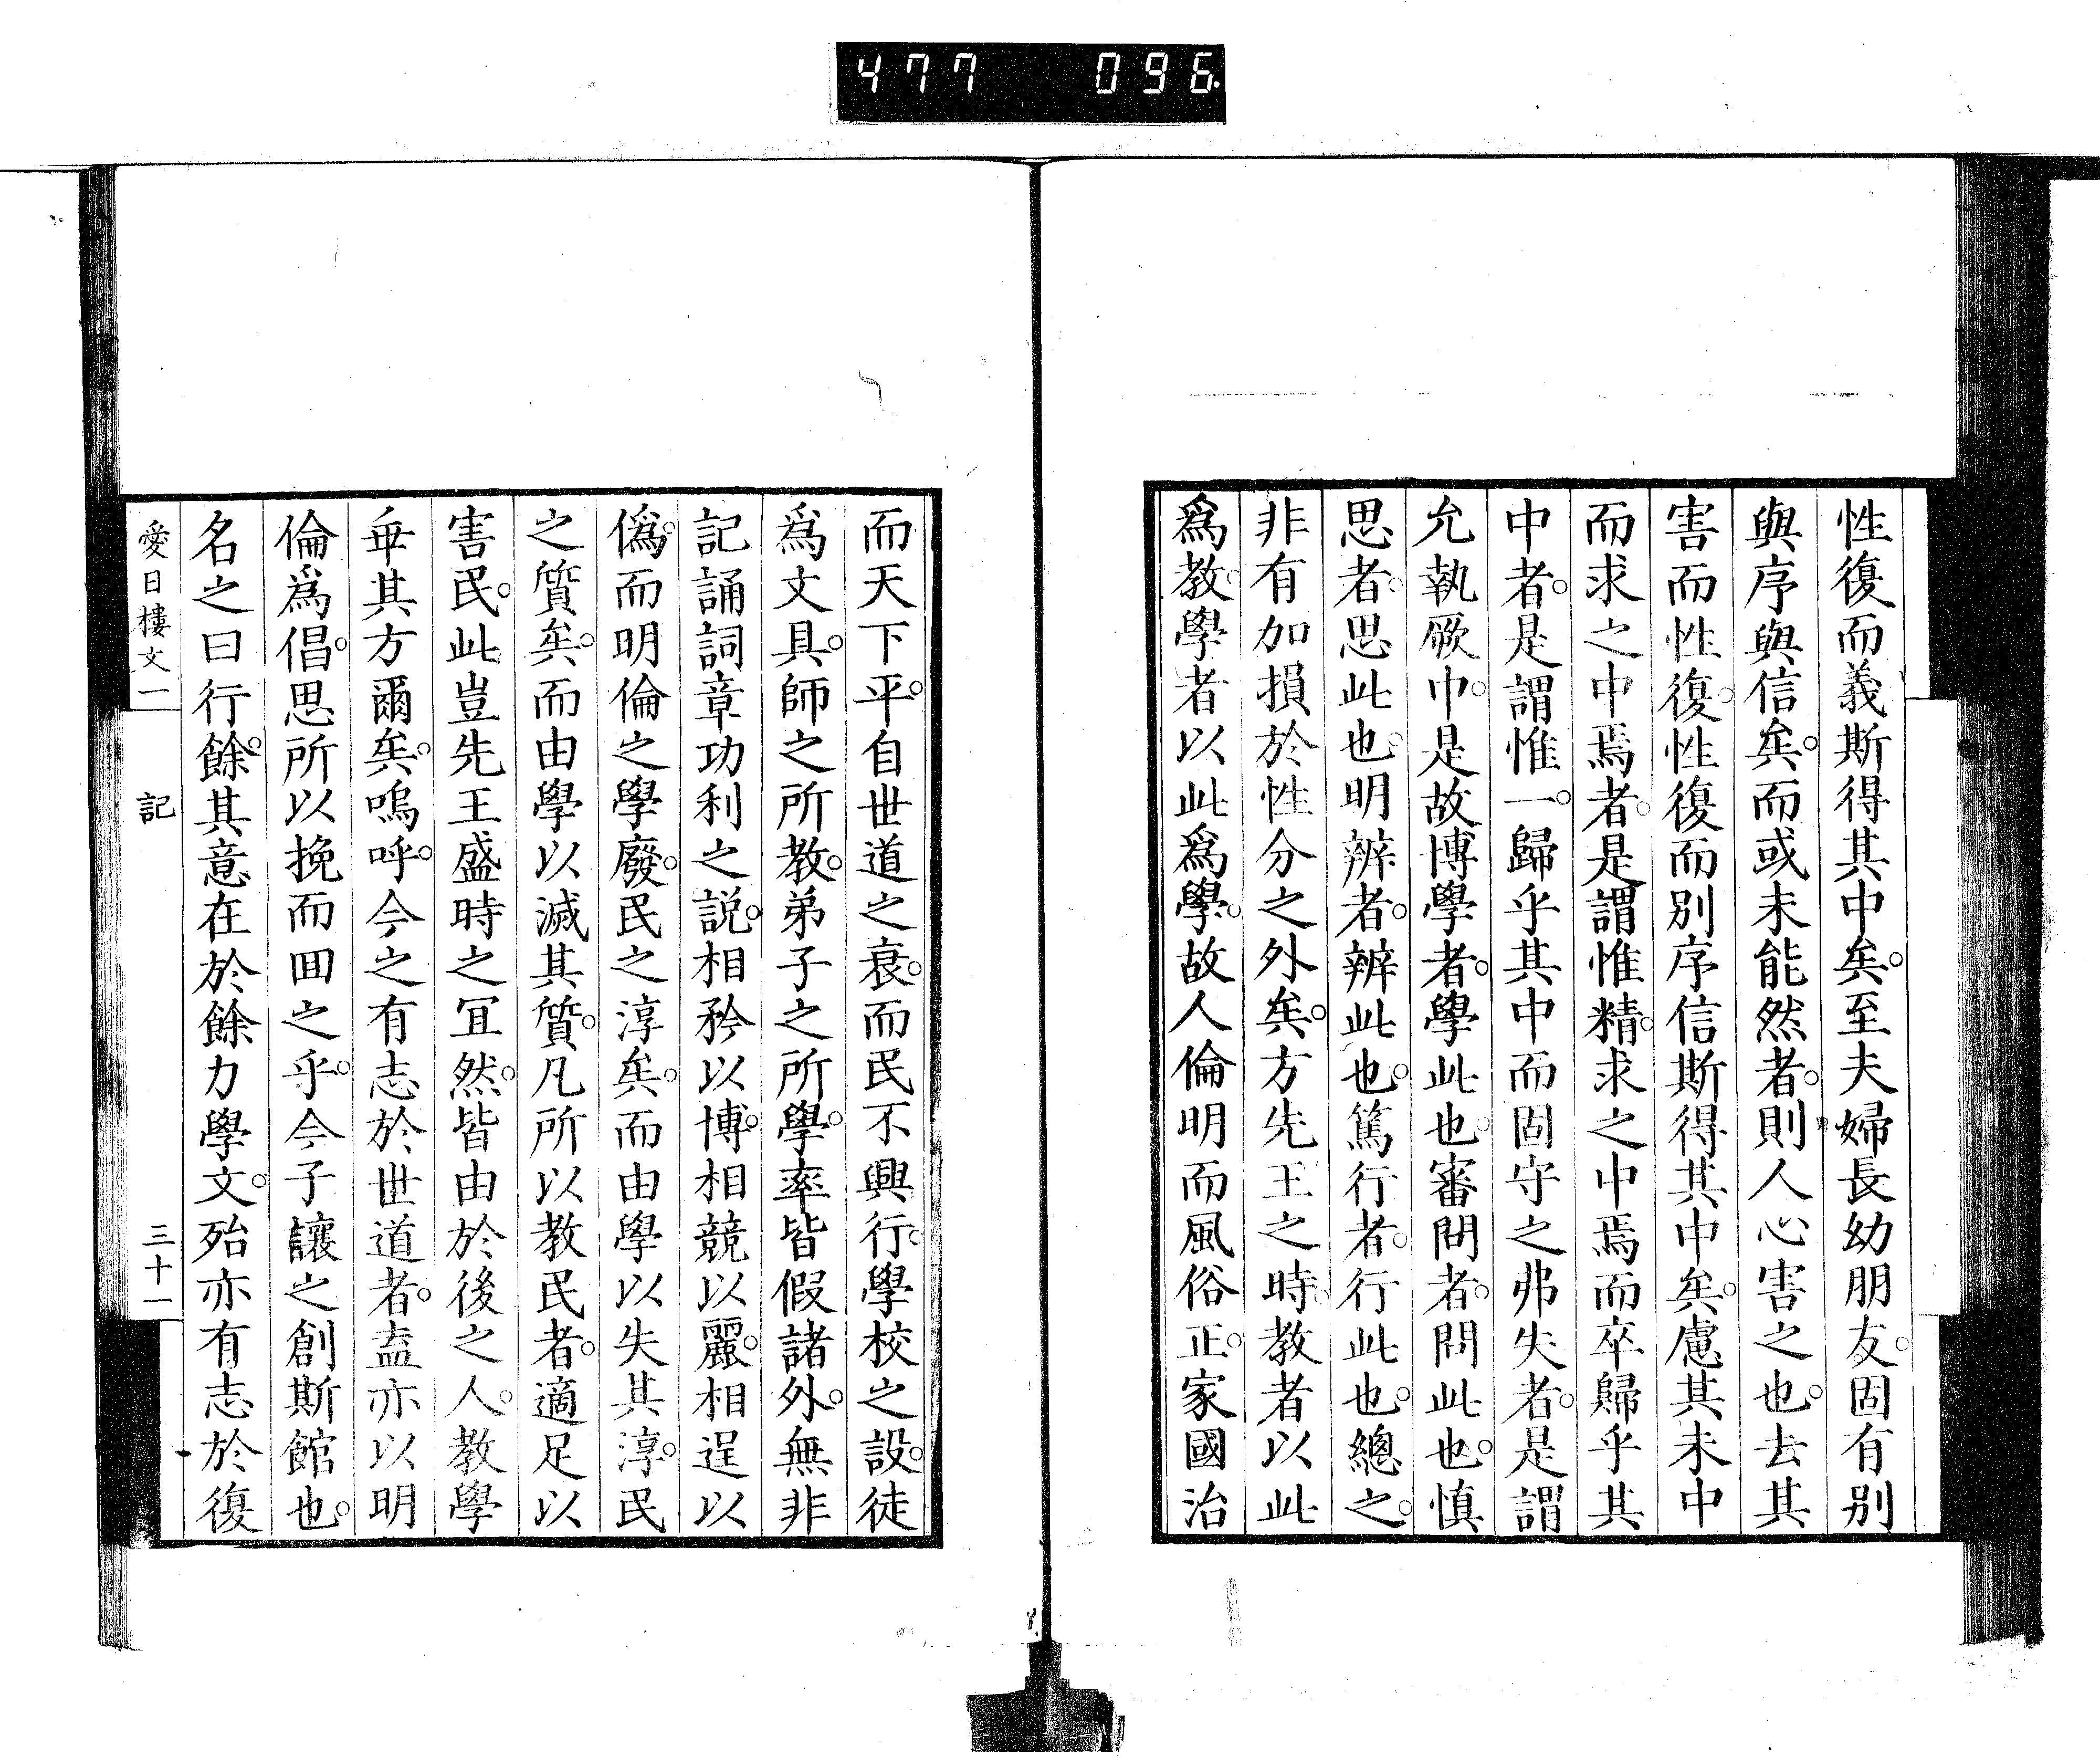 477 096
性復而義斯得其中矣。至夫婦長幼朋友。固有別
與序與信矣。而或未能然者。則人心害之也。去其
害而性復。性復而別序信斯得其中矣。慮其未中
而求之中焉者。是謂惟精。求之中焉而卒歸乎其
中者。是謂惟一。歸乎其中而固守之弗失者。是謂
允執厥中。是故博學者。學此也。審問者。問此也。愼
思者。思此也。明辨者。辨此也。篤行者。行此也。總之。
非有加損於性分之外矣。方先王之時。教者以此
爲教。學者以此爲學。故人倫明而風俗正。家國治
而天下平。自世道之衰。而民不興行。學校之設。徒
爲文具。師之所教。弟子之所學。率皆假諸外。無非
記誦詞章功利之説。相矜以博。相競以麗。相逞以
僞。而明倫之學廢。民之淳矣。而由學以失其淳。民
之質矣。而由學以滅其質。凡所以教民者。適足以
害民。此豈先王盛時之冝然。皆由於後之人。教學
乖其方爾矣。嗚呼。今之有志於世道者。盍亦以明
倫爲倡。思所以挽而回之乎。今子讓之創斯館也。
名之曰行餘。其意在於餘力學文。殆亦有志於復
愛日樓文一 記 三十一